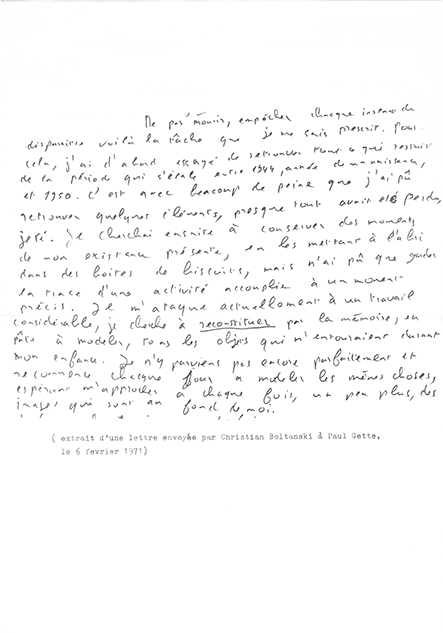 Ne pas mourir, empêcher chaque instant de
disparaitre voilà la tâche que je me suis prescrit. Pour
cela, j'ai d'abord essayé de retrouver tout ce qui restait
de la période qui s'étale entre 1944, année de ma naissance,
et 1950. C'est avec beaucoup de peine que j'ai pû
retrouver quelques éléments, presque tout avait été perdu,
jeté. Je cherchai ensuite à conserver des moments
de mon existence présente, en les mettant à l'abri
dans des boites de biscuits, mais n'ai pû que garder
la trace d'une activité accomplie à un moment
précis. Je m'ataque actuellement à un travail
considérable, je cherche à reconstituer par la mémoire, en
pâte à modeler, tous les objets qui m'entouraient durant
mon enfance. Je n'y parviens pas encore parfaitement et
recommence chaque jour a modeler les mêmes choses,
espérant m'approcher à chaque fois, un peu plus, des
images qui sont au fond de moi.
( extrait d'une lettre envoyée par Christian Boltanski à Paul Gette,
le 6 fevrier 1971)